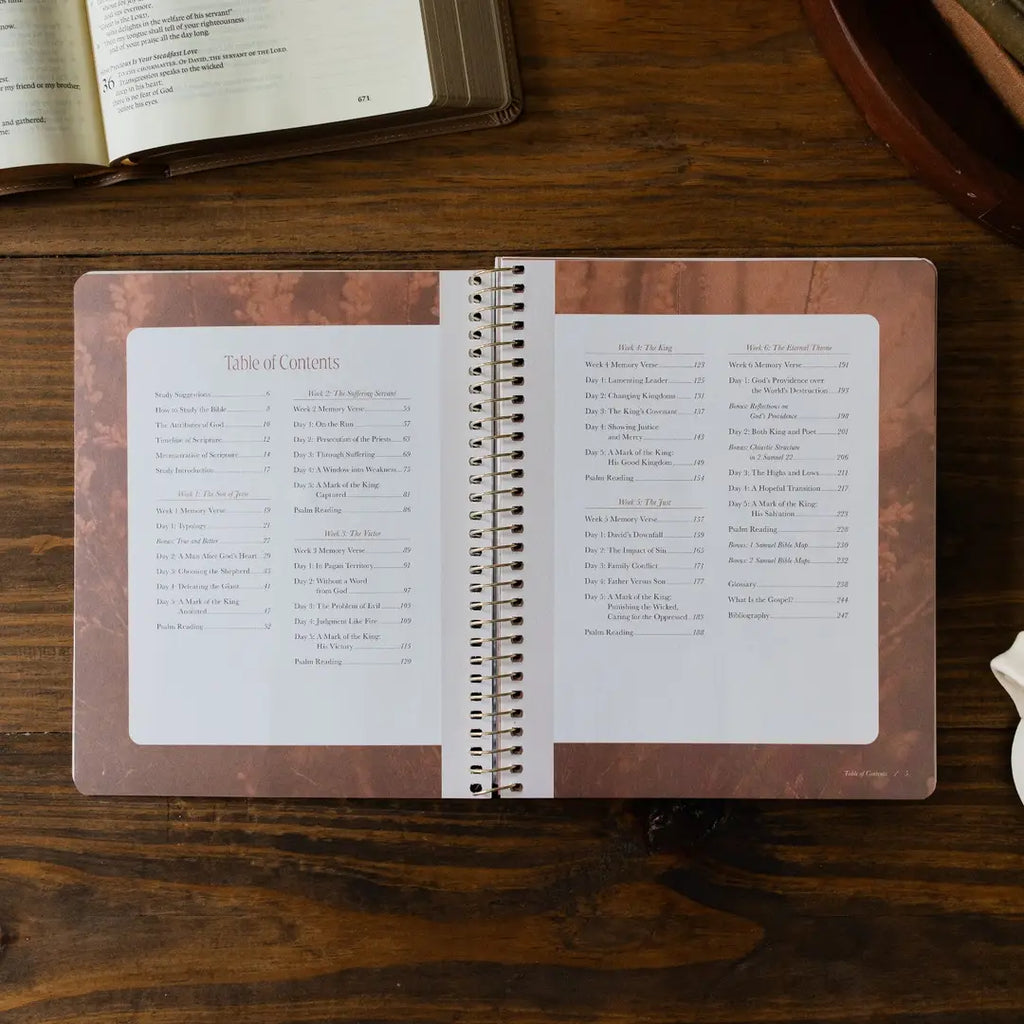 now.
est.
r my friend or my brother;
and gathered;
me;
and say evermore,
"Great is the LORD,
who delights in the welfare of his servant!"
Then my tongue shall tell of your righteousness
and of your praise all the day long.
Precious Is Your Steadfast Love
TO THE CHOIRMASTER. OF DAVID, THE SERVANT OF THE LORD.
36 Transgression speaks to the wicked
deep in his heart;
there is no fear of God
before his eyes.
671
Table of Contents
Study Suggestions 6
How to Study the Bible 8
The Attributes of God 10
Timeline of Scripture 12
Metanarrative of Scripture 14
Study Introduction 17
Week 1: The Son of Jesse
Week 1 Memory Verse 19
Day 1: Typology 21
Bonus: True and Better 27
Day 2: A Man After God's Heart 29
Day 3: Choosing the Shepherd 35
Day 4: Defeating the Giant 41
Day 5: A Mark of the King:
Anointed 47
Psalm Reading 52
Week 2: The Suffering Servant
Week 2 Memory Verse 55
Day 1: On the Run 57
Day 2: Persecution of the Priests 63
Day 3: Through Suffering 69
Day 4: A Window into Weakness 75
Day 5: A Mark of the King:
Captured 81
Psalm Reading 86
Week 3: The Victor
Week 3 Memory Verse 89
Day 1: In Pagan Territory 91
Day 2: Without a Word
from God 97
Day 3: The Problem of Evil 103
Day 4: Judgment Like Fire 109
Day 5: A Mark of the King:
His Victory 115
Psalm Reading 120
Week 4: The King
Week 4 Memory Verse 123
Day 1: Lamenting Leader 125
Day 2: Changing Kingdoms 131
Day 3: The King's Covenant 137
Day 4: Showing Justice
and Mercy 143
Day 5: A Mark of the King:
His Good Kingdom 149
Psalm Reading 154
Week 5: The Just
Week 5 Memory Verse 157
Day 1: David's Downfall 159
Day 2: The Impact of Sin 165
Day 3: Family Conflict 171
Day 4: Father Versus Son 177
Day 5: A Mark of the King:
Punishing the Wicked,
Caring for the Oppressed 183
Psalm Reading 188
Week 6: The Eternal Throne
Week 6 Memory Verse 191
Day 1: God's Providence over
the World's Destruction 193
Bonus: Reflections on
God's Providence 198
Day 2: Both King and Poet 201
Bonus: Chiastic Structure
in 2 Samuel 22 206
Day 3: The Highs and Lows 211
Day 4: A Hopeful Transition 217
Day 5: A Mark of the King:
His Salvation 223
Psalm Reading 228
Bonus: 1 Samuel Bible Map 230
Bonus: 2 Samuel Bible Maps 232
Glossary 238
What Is the Gospel? 244
Bibliography 247
Table of Contents / 5